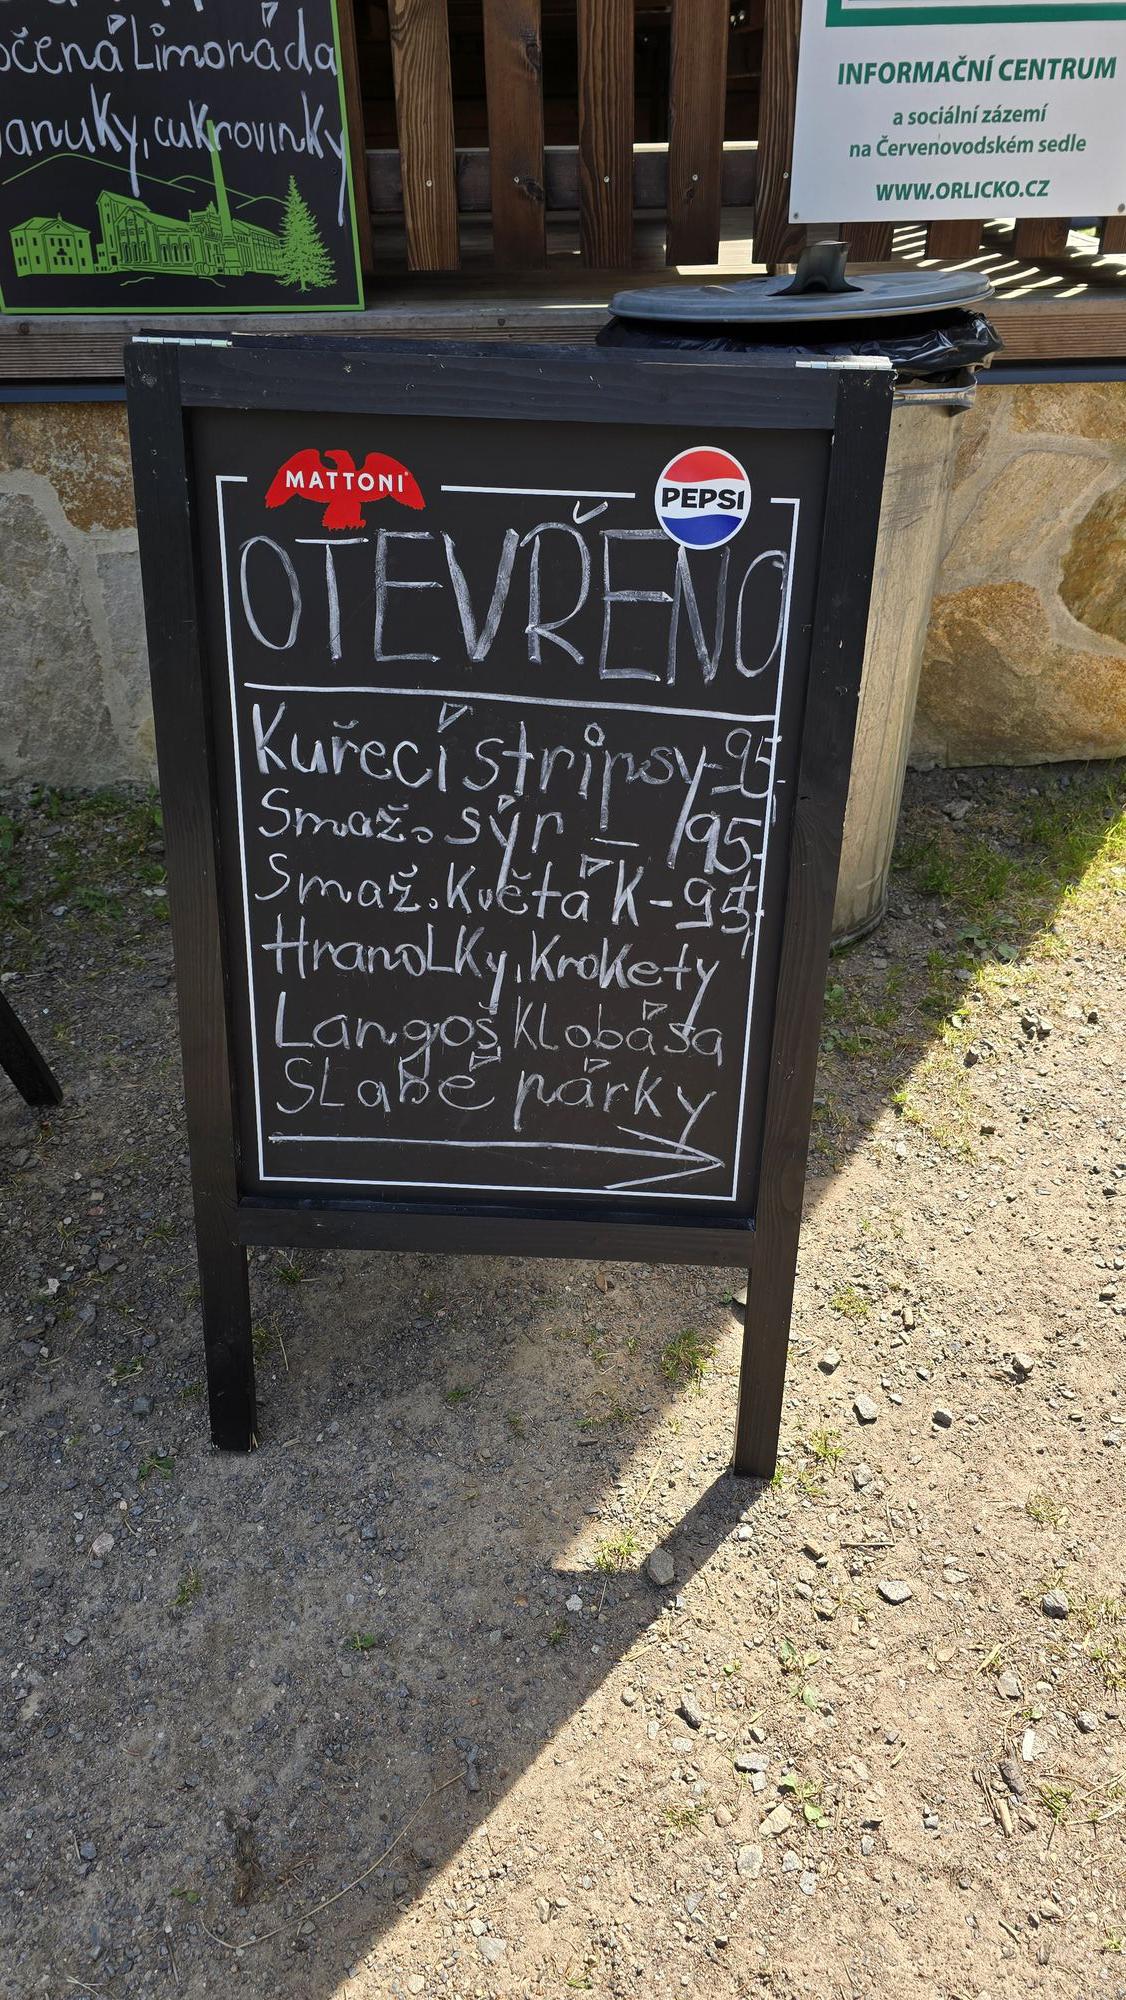 očená Limonáda
anuky, cukrovinky
INFORMAČNÍ CENTRUM
a sociální zázemí
na Červenovodském sedle
WWW.ORLICKO.CZ
MATTONI
PEPSI
OTEVŘENO
Kuřecí stripsy-95,
Smaž. sýr - 95,
Smaž. Květák-95,
Hranolky, Krokety
Langoš Klobása
Slabé párky